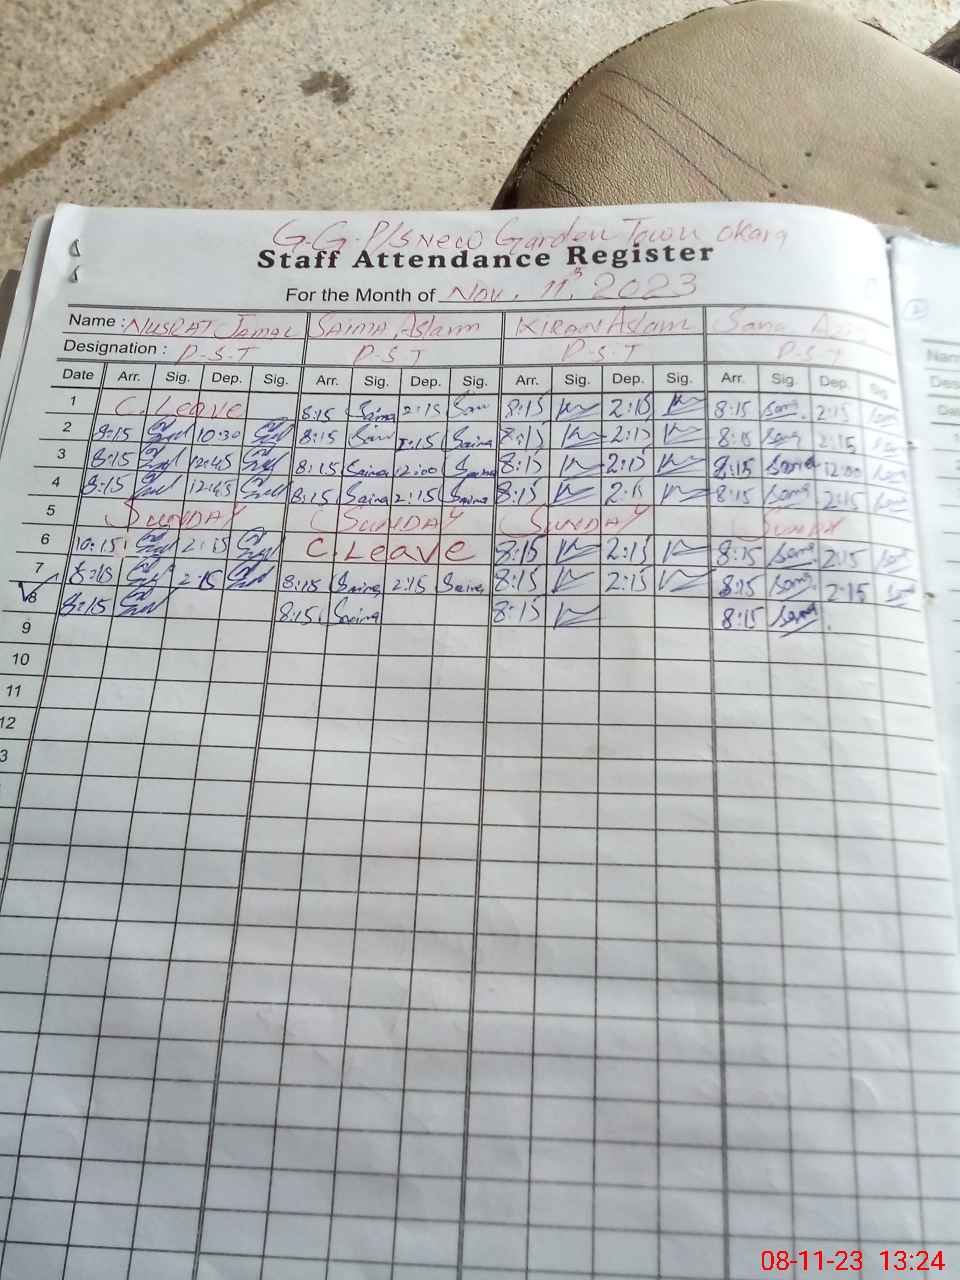 G.G.P/S New Garden Town Okara
Staff Attendance Register
For the Month of Nov. 11th, 2023
Name : Nusrat Jamal Saima Aslam Kiran Aslam Sana
Designation : P.S.T P.S.T P.S.T P.S.T
Date Arr. Sig. Dep. Sig. Arr. Sig. Dep. Sig. Arr. Sig. Dep. Sig. Arr. Sig. Dep. Sig
1 C. Leave 8:15 Saima 2:15 8:15 2:15 8:15 Sana 2:15
2 8:15 10:30 8:15 Saima 8:15 2:15 8:15 Sana 2:15
3 8:15 12:45 8:15 Saima 12:00 Saima 8:15 2:15 8:15 Sana 12:00
4 8:15 12:45 8:15 Saima 2:15 Saima 8:15 2:15 8:15 Sana 2:15
5 SUNDAY SUNDAY SUNDAY SUNDAY
6 10:15 2:15 C. Leave 8:15 2:15 8:15 Sana 2:15
7 8:15 2:15 8:15 Saima 2:15 Saima 8:15 2:15 8:15 Sana 2:15
8 8:15 8:15 Saima 8:15 8:15 Sana
9
10
11
12
3
Nam
Des
Dat
08-11-23 13:24